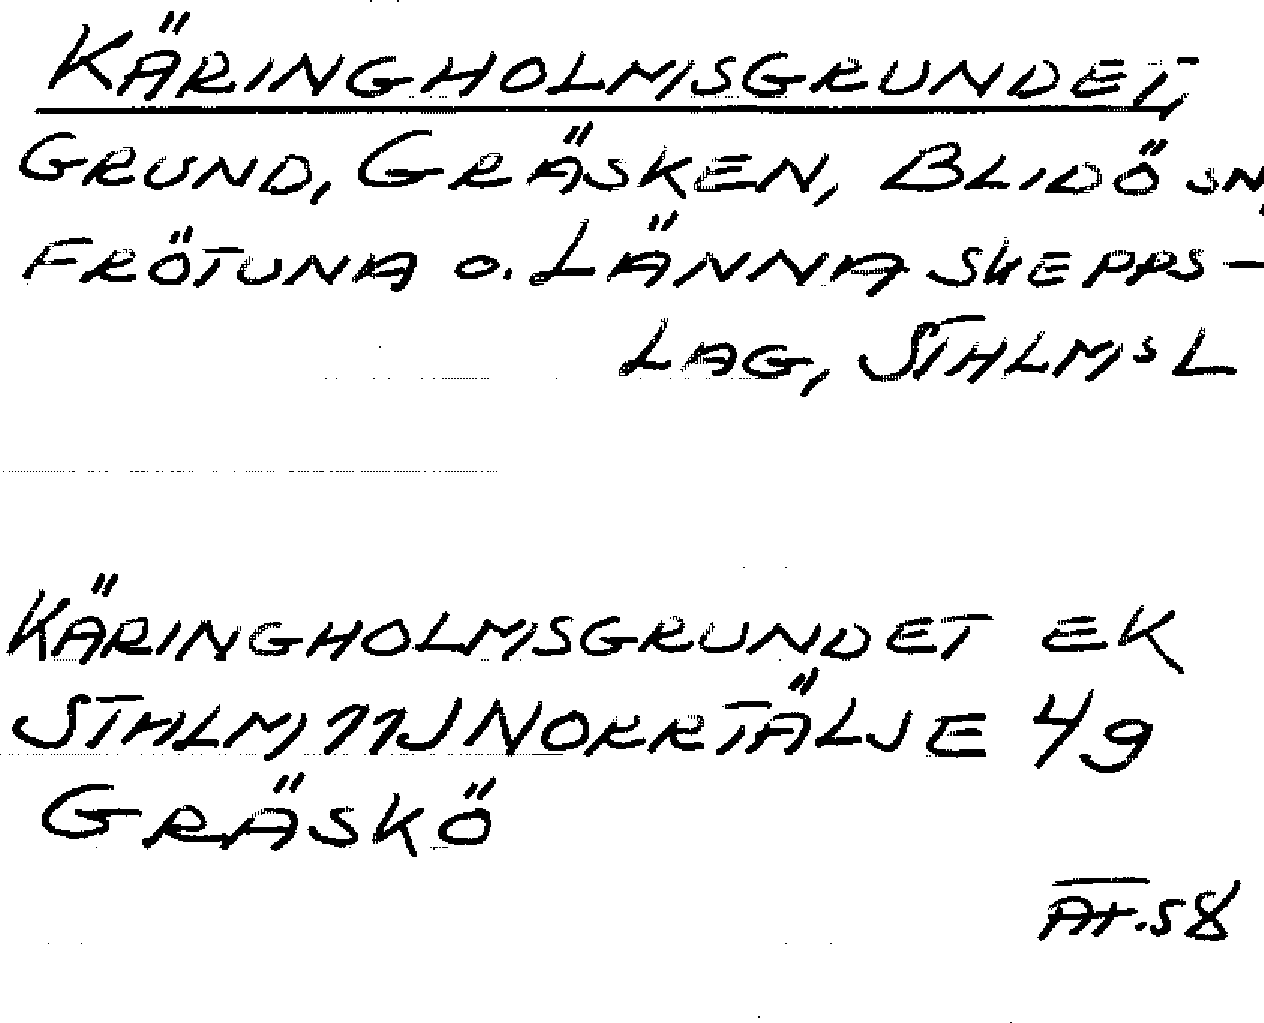 KÄRINGHOLMSGRUNDET,
GRUND, GRÄSKEN, BLIDÖ SN,
FRÖTUNA O. LÄNNA SKEPPS-
LAG, STHLMS L
KÄRINGHOLMSGRUNDET EK
STHLM 11J NORRTÄLJE 49
GRÄSKÖ